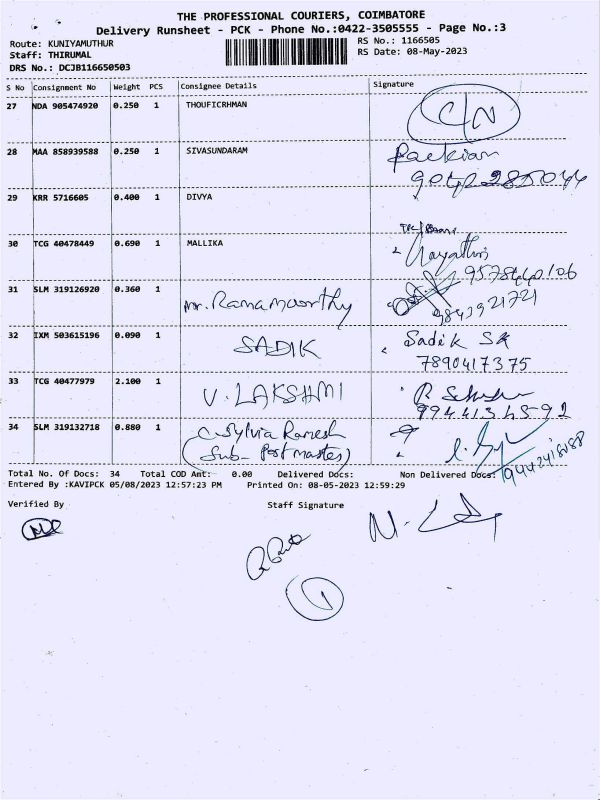 THE PROFESSIONAL COURIERS, COIMBATORE
Delivery Runsheet - PCK - Phone No.:0422-3505555 - Page No.:3
Route: KUNIYAMUTHUR
RS No.: 1166505
Staff: THIRUMAL
RS Date: 08-May-2023
DRS No.: DCJB116650503
S No Consignment No Weight PCS Consignee Details Signature
27 NDA 905474920 0.250 1 THOUFICRHMAN C/N
28 MAA 858939588 0.250 1 SIVASUNDARAM
29 KRR 5716605 0.400 1 DIVYA
30 TCG 40478449 0.690 1 MALLIKA
31 SLM 319126920 0.360 1 Mr. Ramamoorthy 9843921721
32 IXM 503615196 0.090 1 SADIK Sadik SA
7890417375
33 TCG 40477979 2.100 1 V. LAKSHMI
34 SLM 319132718 0.880 1 C. Sylvia Ramesh
(Sub- Post master)
Total No. Of Docs: 34 Total COD Amt: 0.00 Delivered Docs: Non Delivered Docs:
Entered By :KAVIPCK 05/08/2023 12:57:23 PM Printed On: 08-05-2023 12:59:29
Verified By Staff Signature